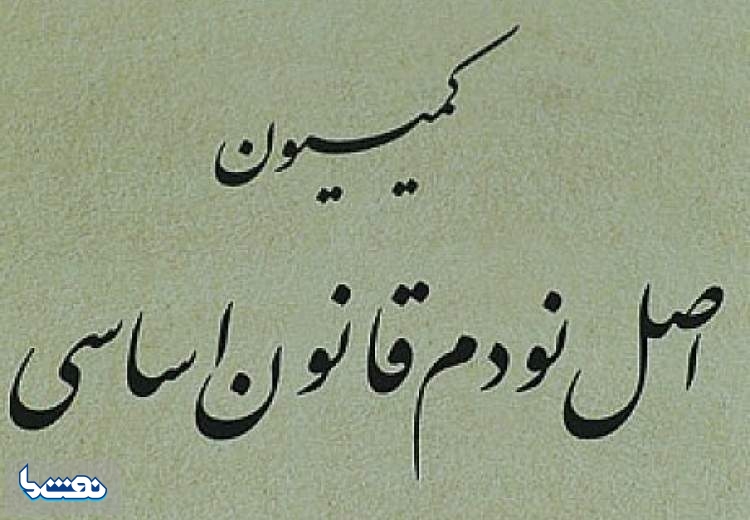 کمیسیون
اصل نودم قانون اساسی
نفت ما